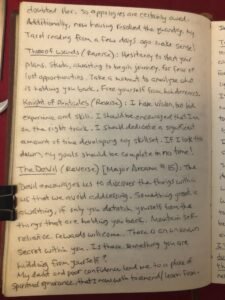 doubted her. So apologies are certainly owed.
Additionally, now having finished the yesterday, my
Tarot reading from a few days ago make sense!
Three of Wands (Reverse): Hesitancy to start your
plans. Stuck, awaiting to begin journey, for fear of
lost opportunities. Take a moment to analyse who
is holding you back. Free yourself from hinderances.
Knight of Pentacles (Reverse): I have vision, but lack
experience and skill. I should be encouraged that I am
on the right track. I should dedicate a significant
amount of time developing my skillset. If I look this
down, my goals should be complete in no time!
The Devil (Reverse) [Major Arcana #15]: The
Devil encourages us to discover the things within
us that we avoid addressing. Something great is
awaiting, if only you detatch yourself from the
things that are holding you back. Maintain self-
reliance. Rewards will come. There is an unknown
secret within you. Is there something you are
hiding from yourself?
My debt and poor confidence lead me to a place of
spiritual ignorance, that I now wish to amend/learn from.